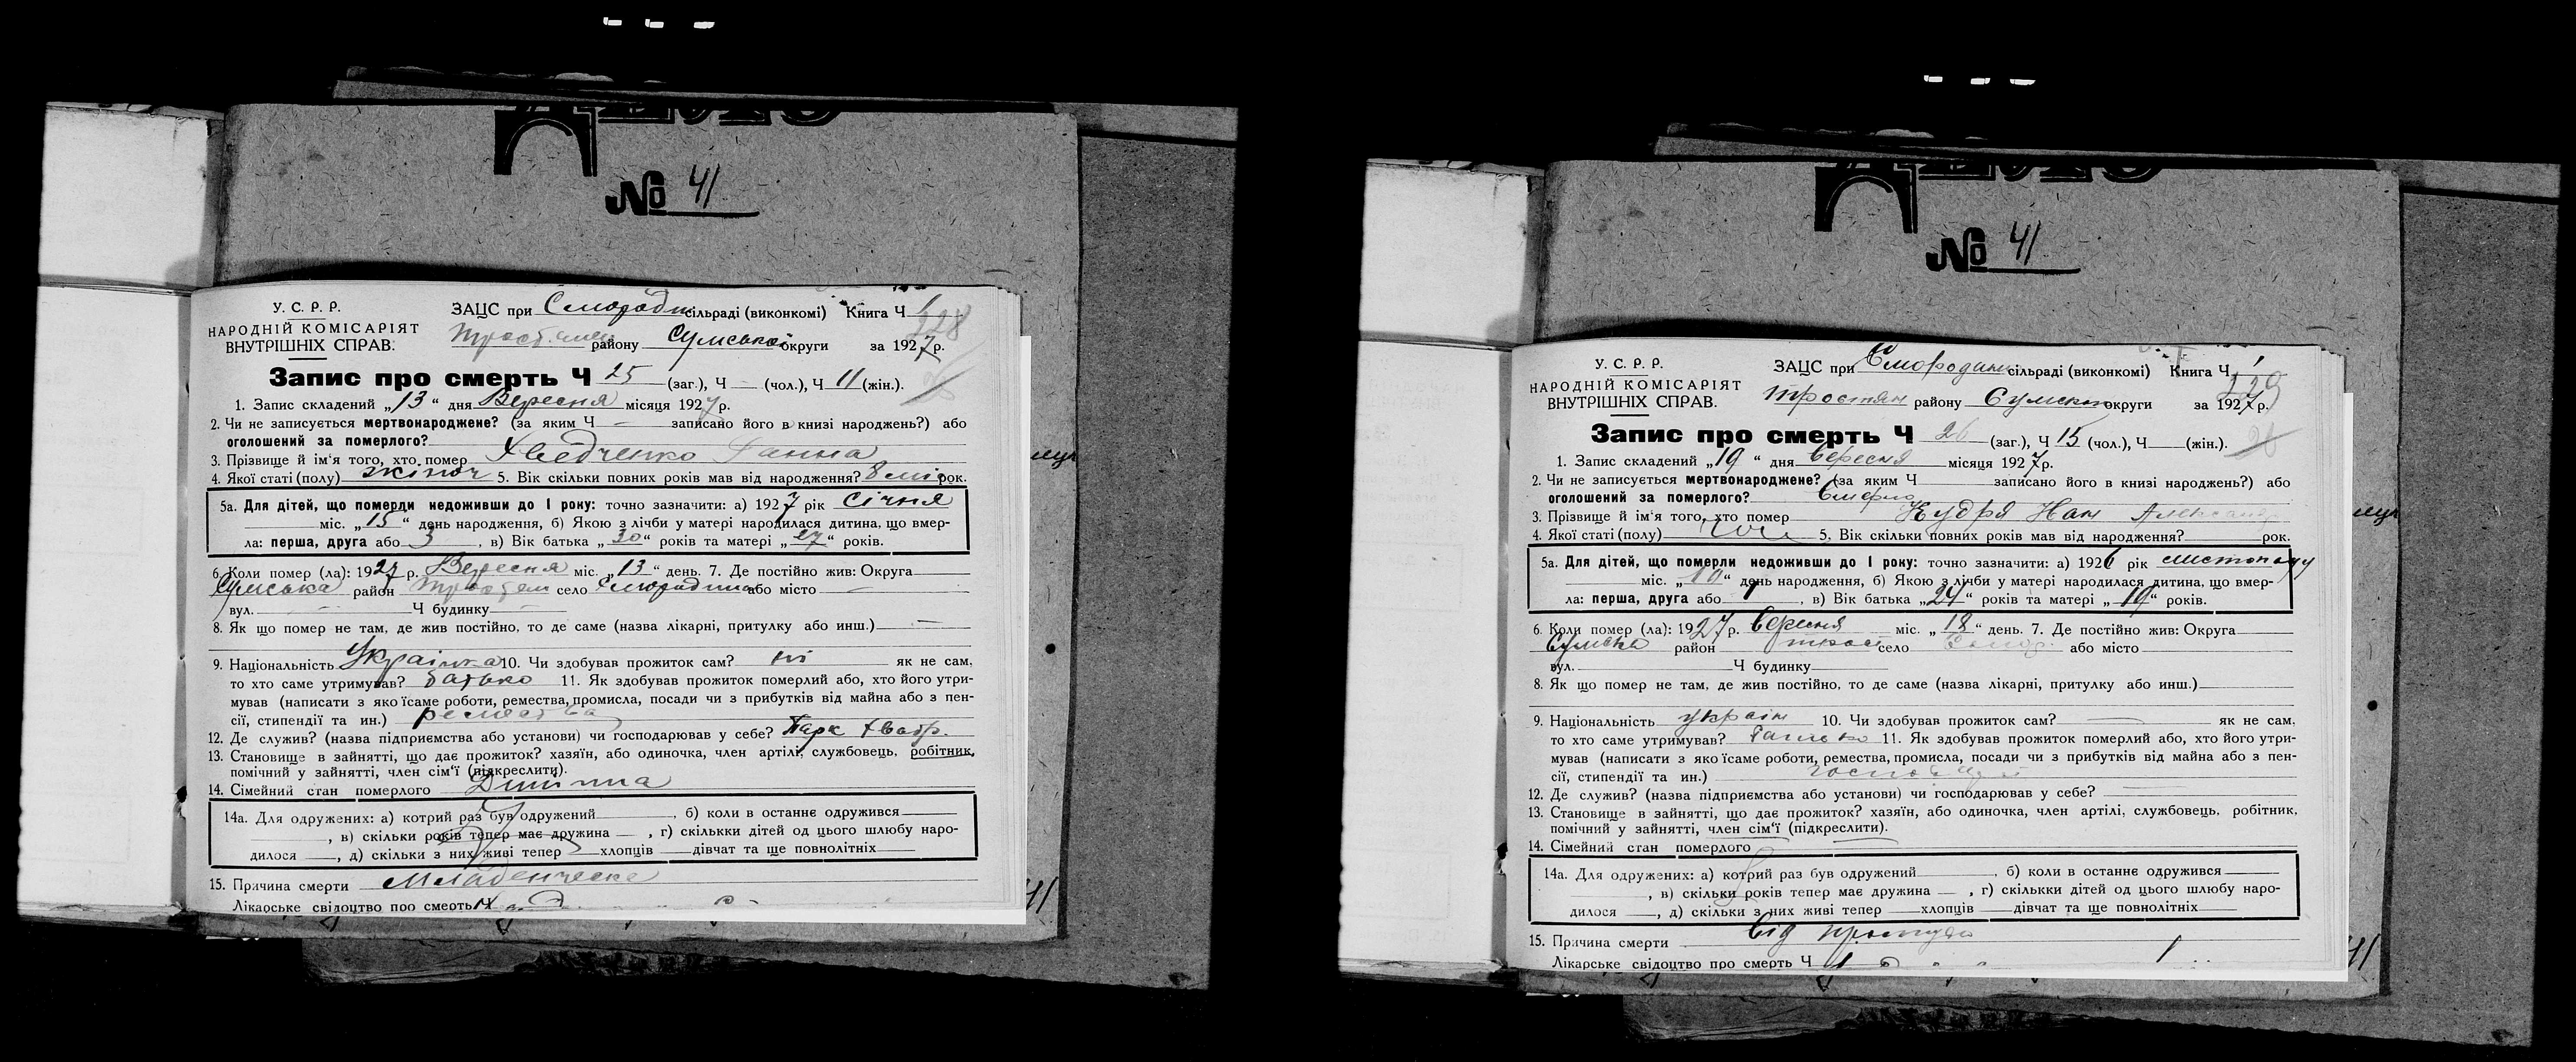 № 41
У. С. Р. Р.
НАРОДНІЙ КОМІСАРІЯТ
ВНУТРІШНІХ СПРАВ.
ЗАЦС при Смородин сільраді (виконкомі) Книга Ч 1
228
Тростянец району Сумської округи за 1927 р.
Запис про смерть Ч 25 (заг.), Ч — (чол.), Ч 11 (жін.).
1. Запис складений „13“ дня Вересня місяця 1927 р.
2. Чи не записується мертвонароджене? (за яким Ч — записано його в книзі народжень?) або
оголошений за померлого?
3. Прізвище й ім'я того, хто помер Хведченко Ганна
4. Якої статі (полу) жіноч 5. Вік скільки повних років мав від народження? 8 міс рок.
5а. Для дітей, що померли недоживши до 1 року: точно зазначити: а) 1927 рік Січня
міс. „15“ день народження, б) Якою з лічби у матері народилася дитина, що вмер-
ла: перша, друга або 3, в) Вік батька „30“ років та матері „27“ років.
6. Коли помер (ла): 1927 р. Вересня міс. „13“ день. 7. Де постійно жив: Округа
Сумська район Тростян село Смородина або місто —
вул. — Ч будинку —
8. Як що помер не там, де жив постійно, то де саме (назва лікарні, притулку або инш.) —
9. Національність Українка 10. Чи здобував прожиток сам? ні як не сам,
то хто саме утримував? батько 11. Як здобував прожиток померлий або, хто його утри-
мував (написати з якоїсаме роботи, ремества, промисла, посади чи з прибутків від майна або з пен-
сії, стипендії та ин.) ремества
12. Де служив? (назва підприємства або установи) чи господарював у себе? Парк Хвабр.
13. Становище в зайнятті, що дає прожиток? хазяїн, або одиночка, член артілі, службовець, робітник,
помічний у зайнятті, член сім'ї (підкреслити).
14. Сімейний стан померлого Дитина
14а. Для одружених: а) котрий раз був одружений, б) коли в останнє одружився
, в) скільки років тепер має дружина —, г) скількки дітей од цього шлюбу наро-
дилося —, д) скільки з них живі тепер — хлопців — дівчат та ще повнолітніх
15. Причина смерти Младенческа
Лікарське свідоцтво про смерть Ч
№ 41
У. С. Р. Р.
НАРОДНІЙ КОМІСАРІЯТ
ВНУТРІШНІХ СПРАВ.
ЗАЦС при Смородин сільраді (виконкомі) Книга Ч 1
229
Тростян району Сумской округи за 1927 р.
Запис про смерть Ч 26 (заг.), Ч 15 (чол.), Ч (жін.).
1. Запис складений „19“ дня вересня місяця 1927 р.
2. Чи не записується мертвонароджене? (за яким Ч записано його в книзі народжень?) або
оголошений за померлого?
3. Прізвище й ім'я того, хто помер Кудря
4. Якої статі (полу) 5. Вік скільки повних років мав від народження? рок.
5а. Для дітей, що померли недоживши до 1 року: точно зазначити: а) 1926 рік листопаду
міс. „10“ день народження, б) Якою з лічби у матері народилася дитина, що вмер-
ла: перша, друга або 1, в) Вік батька „24“ років та матері „19“ років.
6. Коли помер (ла): 1927 р. вересня міс. „18“ день. 7. Де постійно жив: Округа
Сумська район трос село Смор. або місто
вул. Ч будинку
8. Як що помер не там, де жив постійно, то де саме (назва лікарні, притулку або инш.)
9. Національність україн 10. Чи здобував прожиток сам? — як не сам,
то хто саме утримував? батько 11. Як здобував прожиток померлий або, хто його утри-
мував (написати з якоїсаме роботи, ремества, промисла, посади чи з прибутків від майна або з пен-
сії, стипендії та ин.)
12. Де служив? (назва підприємства або установи) чи господарював у себе? —
13. Становище в зайнятті, що дає прожиток? хазяїн, або одиночка, член артілі, службовець, робітник,
помічний у зайнятті, член сім'ї (підкреслити).
14. Сімейний стан померлого —
14а. Для одружених: а) котрий раз був одружений, б) коли в останнє одружився
, в) скільки років тепер має дружина —, г) скількки дітей од цього шлюбу наро-
дилося —, д) скільки з них живі тепер — хлопців — дівчат та ще повнолітніх
15. Причина смерти від простуди
Лікарське свідоцтво про смерть Ч